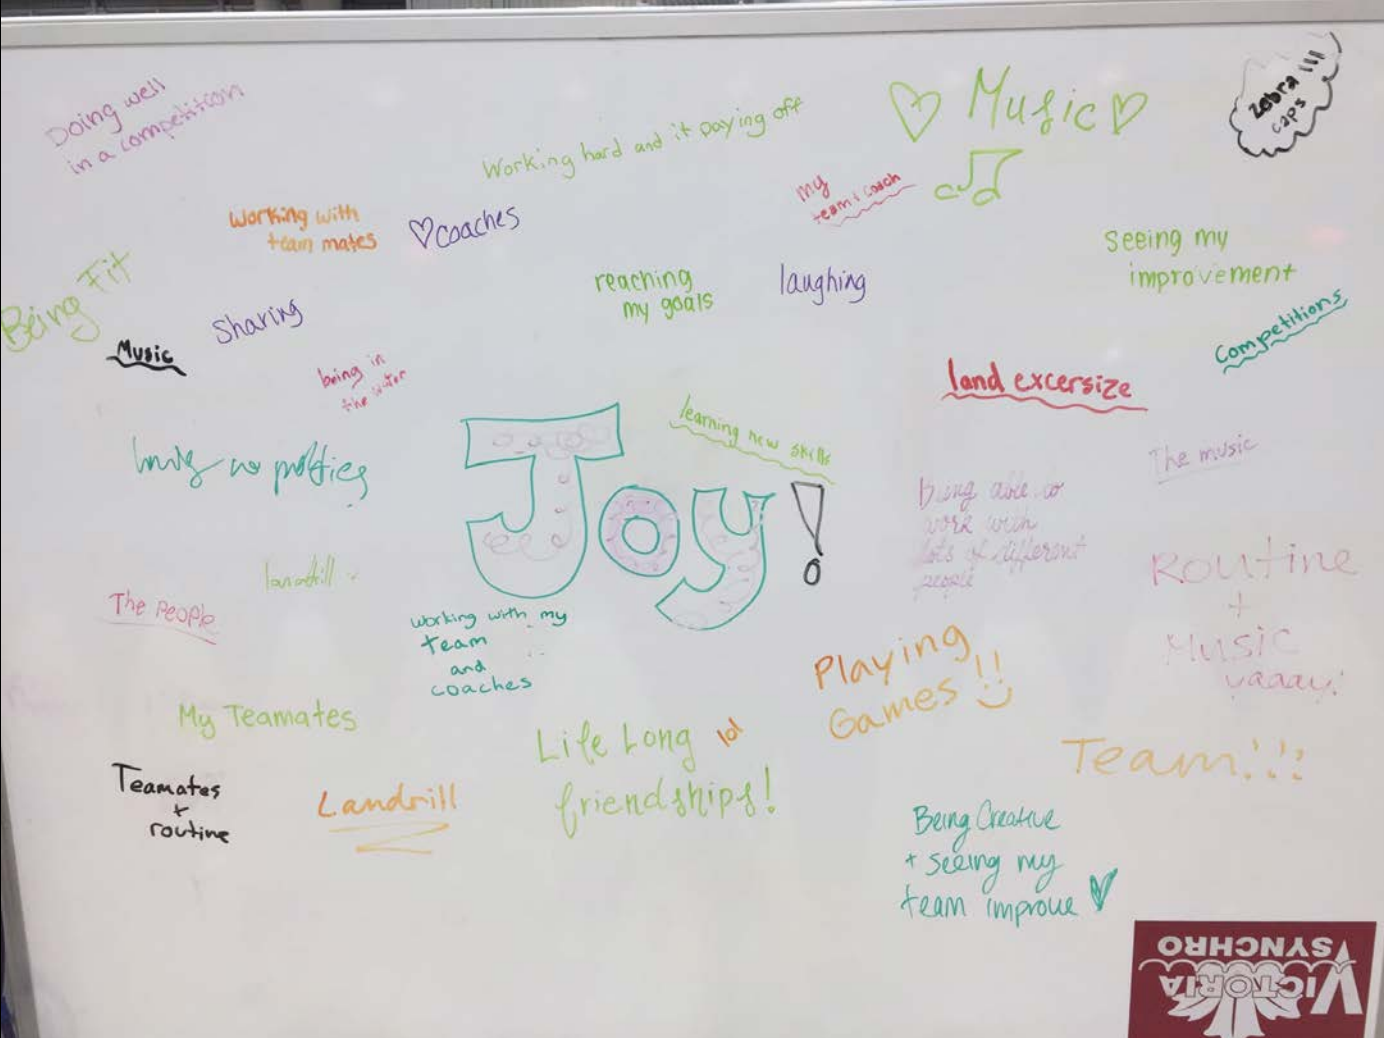 Doing well
in a competiton
Working hard and it paying off
♡ Music ♡
zebra !!!
caps
working with
team mates
♡coaches
my
team & coach
seeing my
improvement
Being Fit
Sharing
reaching
my goals
laughing
Competitions
Music
being in
the water
land excersize
learning new skills
The music
Joy!
Being able to
work with
lots of different
people
Routine
+
Music
yaaay!
landrill
The People
working with my
team
and
coaches
Playing
Games !!
My Teamates
Life Long
friendships!
lol
Team!!!
Teamates
+
routine
Landrill
Being Creative
+ seeing my
team improve ♡
VICTORIA
SYNCHRO